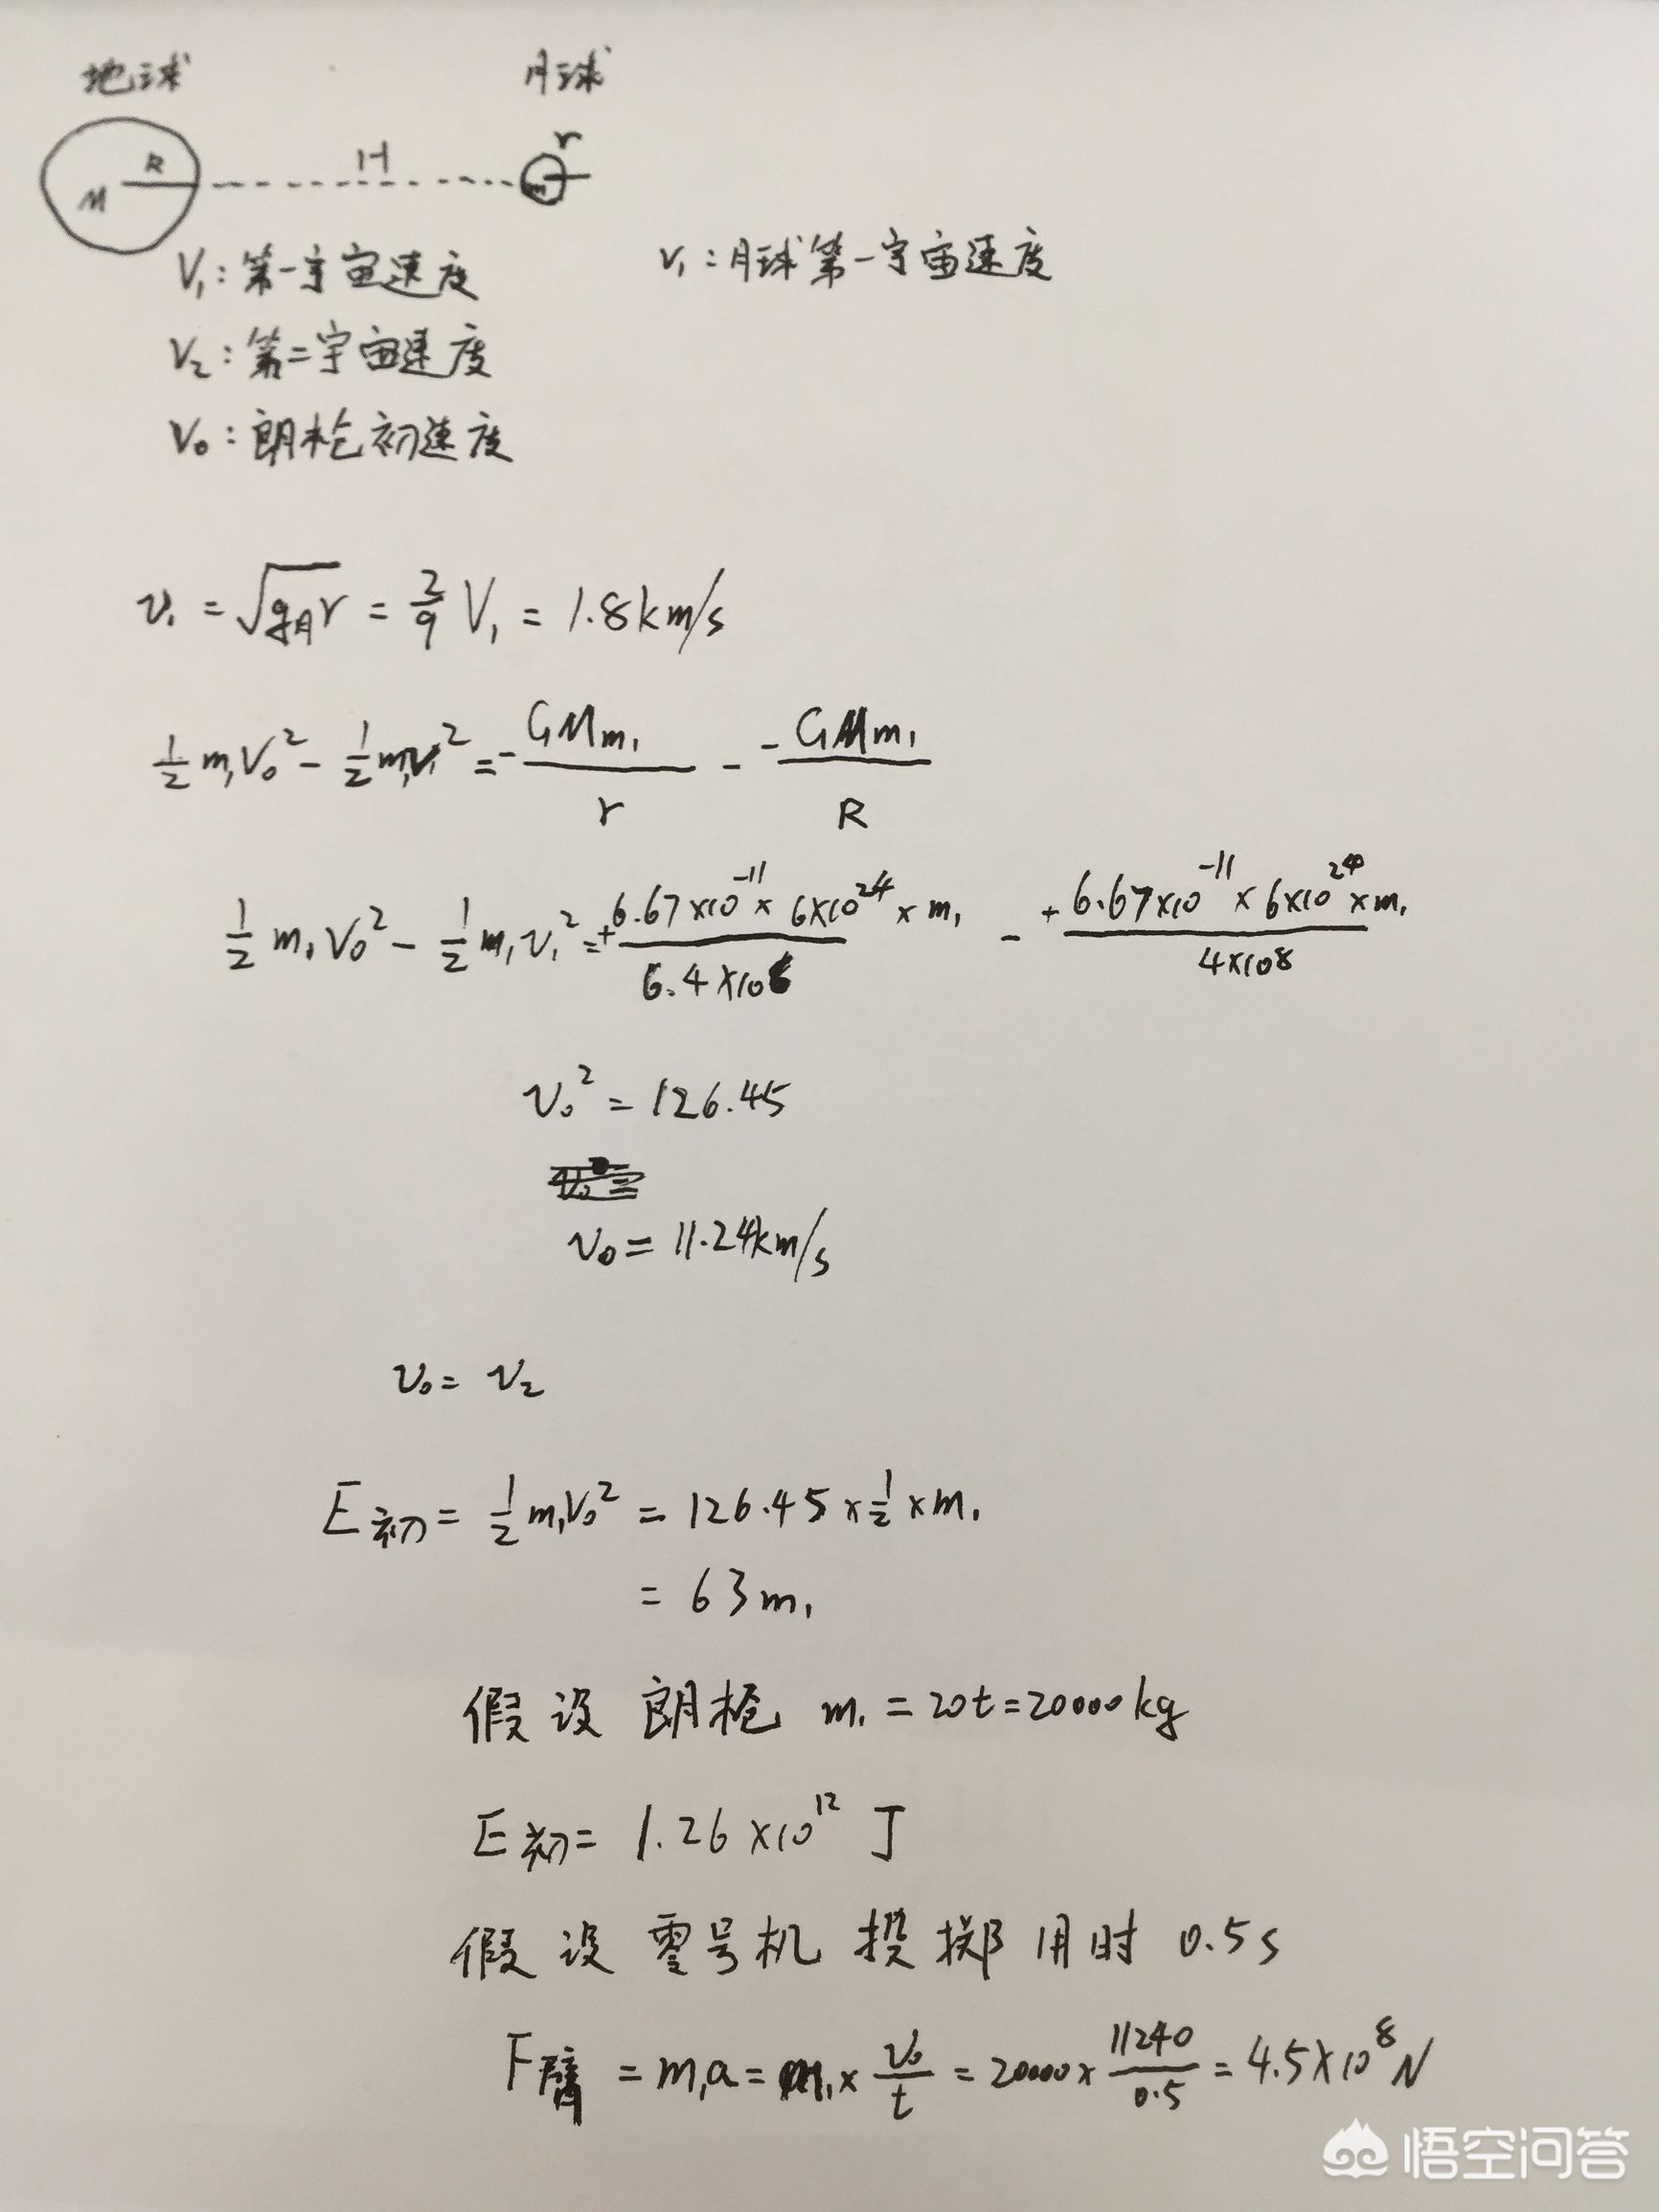 地球 月球
R H r
M m
V₁：第一宇宙速度 v₁：月球第一宇宙速度
V₂：第二宇宙速度
V₀：朗枪初速度
v₁ = √(g月r) = 2/9 V₁ = 1.8km/s
1/2 m₁V₀² - 1/2 m₁v₁² = - GMm₁/r - - GMm₁/R
1/2 m₁V₀² - 1/2 m₁v₁² = + 6.67×10⁻¹¹×6×10²⁴×m₁/6.4×10⁶ - + 6.67×10⁻¹¹×6×10²⁴×m₁/4×10⁸
v₀² = 126.45
v₀ = 11.24km/s
v₀ = v₂
E初 = 1/2 m₁V₀² = 126.45×1/2×m₁
= 63m₁
假设 朗枪 m₁ = 20t = 20000kg
E初 = 1.26×10¹² J
假设 零号机 投掷用时 0.5s
F臂 = m₁a = m₁× v₀/t = 20000× 11240/0.5 = 4.5×10⁸N
悟空问答